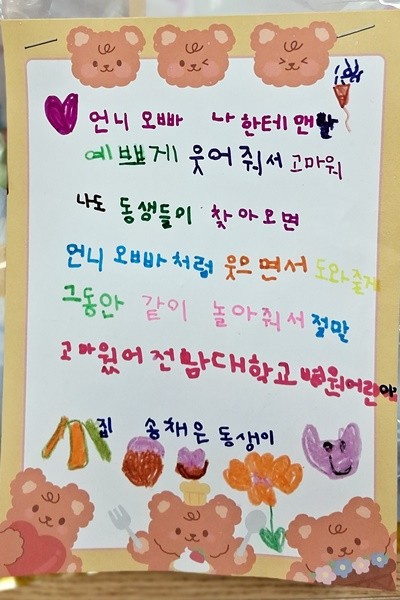 언니 오빠 나한테 맨날
예쁘게 웃어 줘서 고마워
나도 동생들이 찾아오면
언니 오빠처럼 웃으면서 도와줄게
그동안 같이 놀아줘서 정말
고마웠어 전남대학교병원어린이
집 송채은 동생이